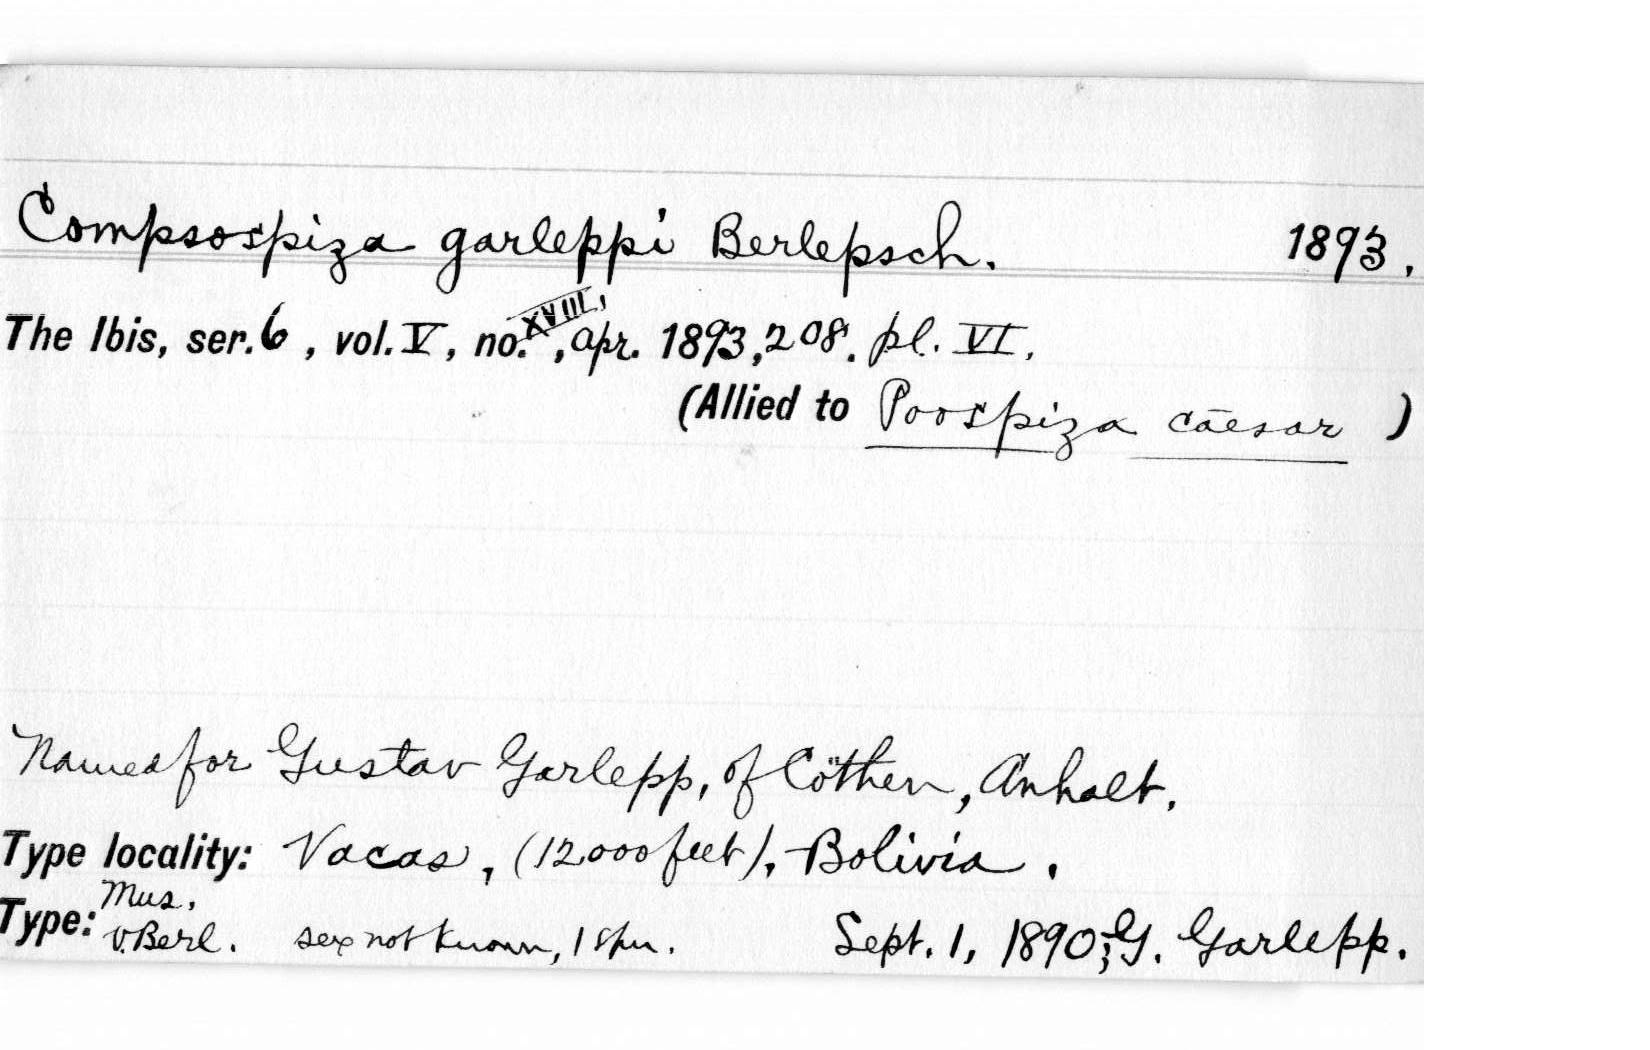 Compsospiza garleppi Berlepsch. 1893.
The Ibis, ser. 6, vol. V, no. XVIII, Apr. 1893, 208. pl. VI.
(Allied to Poospiza caesar)
Named for Gustav Garlepp, of Cöthen, Anhalt.
Type locality: Vacas, (12000 feet), Bolivia.
Type: Mus. v. Berl. sex not known, 1 spm. Sept. 1, 1890; G. Garlepp.